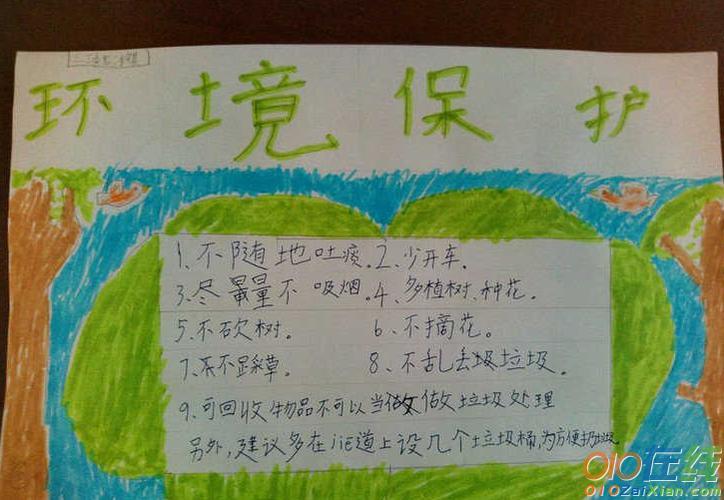 环境保护
1、不随地吐痰。2、少开车。
3、尽量不吸烟。4、多植树、种花。
5、不砍树。 6、不摘花。
7、不踩草。 8、不乱丢圾垃圾。
9、可回收物品不可以当做垃圾处理
另外,建议多在jie道上设几个垃圾桶,为方便扔垃圾
010在线
010ZaiXian.com